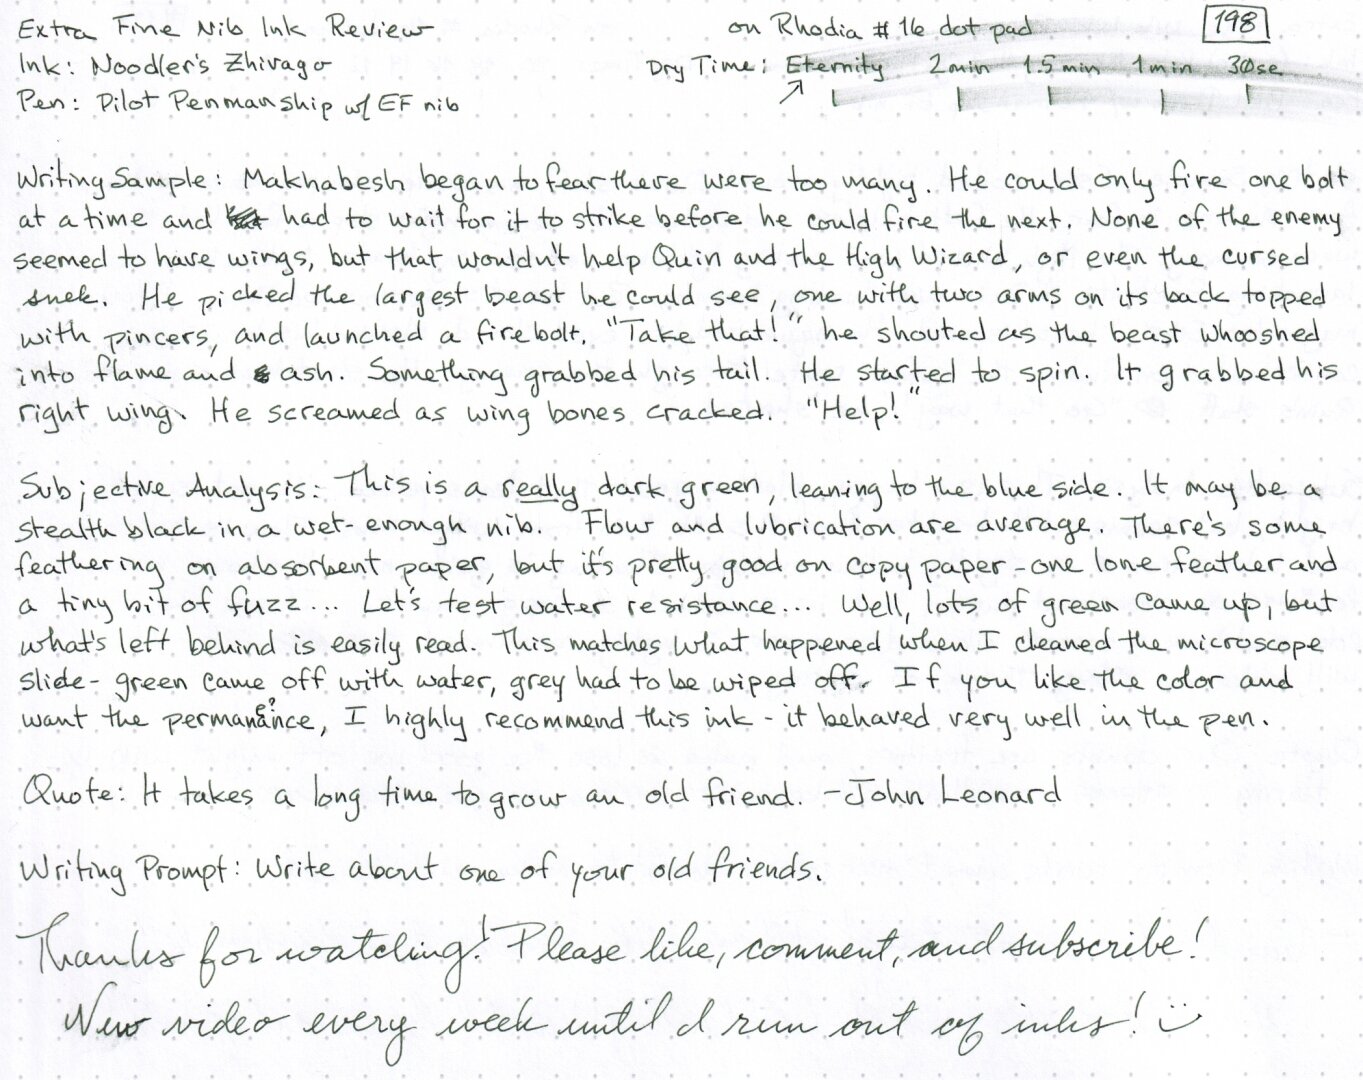 Extra Fine Nib Ink Review
on Rhodia #16 dot pad
198
Ink: Noodler's Zhivago
Dry Time: Eternity 2min 1.5min 1min 30se
Pen: Pilot Penmanship w/ EF nib
Writing Sample: Makhabesh began to fear there were too many. He could only fire one bolt
at a time and had to wait for it to strike before he could fire the next. None of the enemy
seemed to have wings, but that wouldn't help Quin and the High Wizard, or even the cursed
snek. He picked the largest beast he could see, one with two arms on its back topped
with pincers, and launched a firebolt. "Take that!" he shouted as the beast whooshed
into flame and ash. Something grabbed his tail. He started to spin. It grabbed his
right wing. He screamed as wing bones cracked. "Help!"
Subjective Analysis: This is a really dark green, leaning to the blue side. It may be a
stealth black in a wet-enough nib. Flow and lubrication are average. There's some
feathering on absorbent paper, but it's pretty good on copy paper - one lone feather and
a tiny bit of fuzz... Let's test water resistance... Well, lots of green came up, but
what's left behind is easily read. This matches what happened when I cleaned the microscope
slide - green came off with water, grey had to be wiped off. If you like the color and
want the permanance, I highly recommend this ink - it behaved very well in the pen.
e?
Quote: It takes a long time to grow an old friend. - John Leonard
Writing Prompt: Write about one of your old friends.
Thanks for watching! Please like, comment, and subscribe!
New video every week until I run out of inks! :)